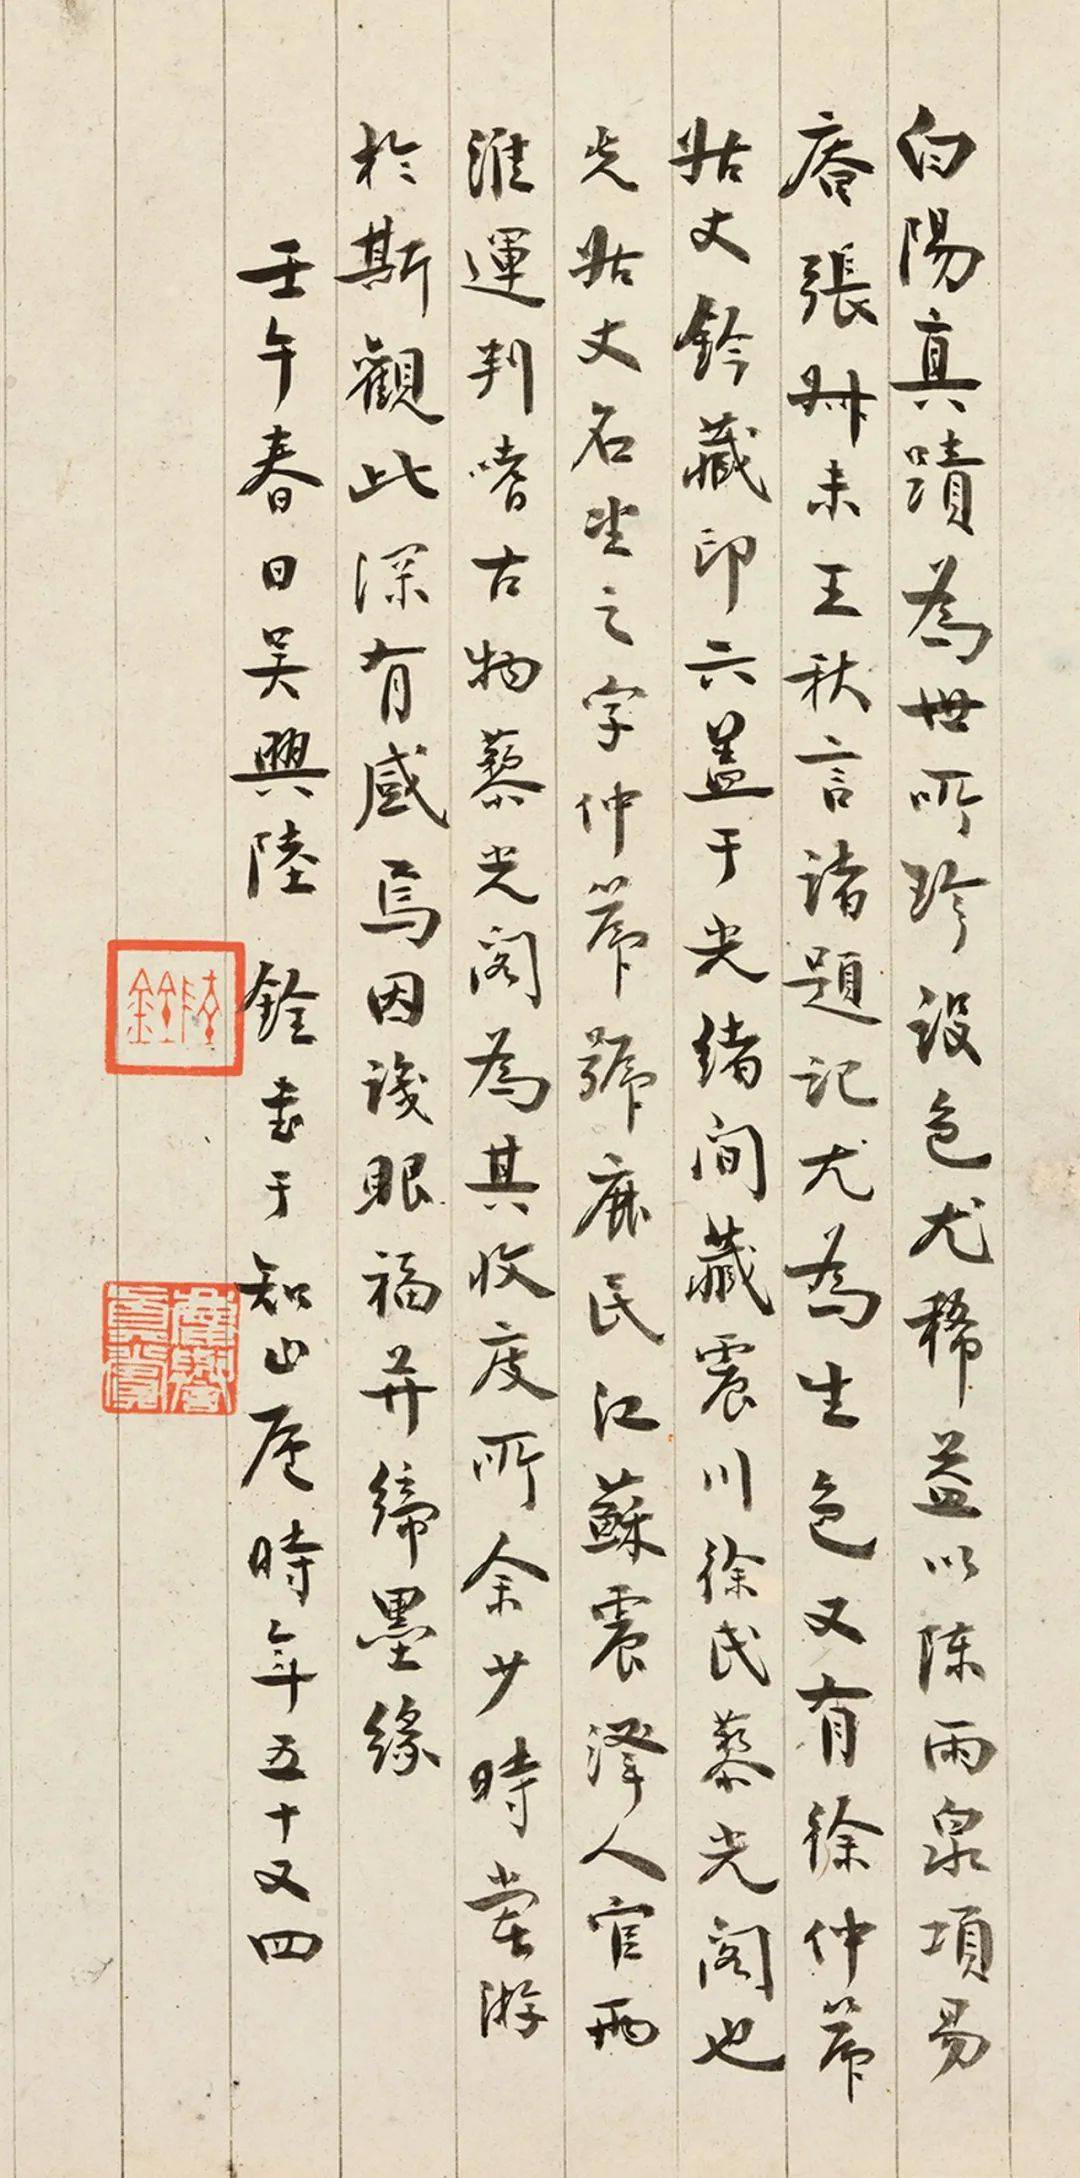 白陽真蹟為世所珍設色尤稀益以陳雨泉項易
庵張叔未王秋言諸題記尤為生色又有徐仲芾
姑丈鈐藏印六蓋于光緒間藏震川徐氏藜光閣也
先姑丈名之字仲芾號鹿民江蘇震澤人官兩
淮運判嗜古物藜光閣為其收庋所余少時嘗游
於斯觀此深有感焉因識眼福并締墨緣
壬午春日吳興陸銓書于知山居時年五十又四
陸銓